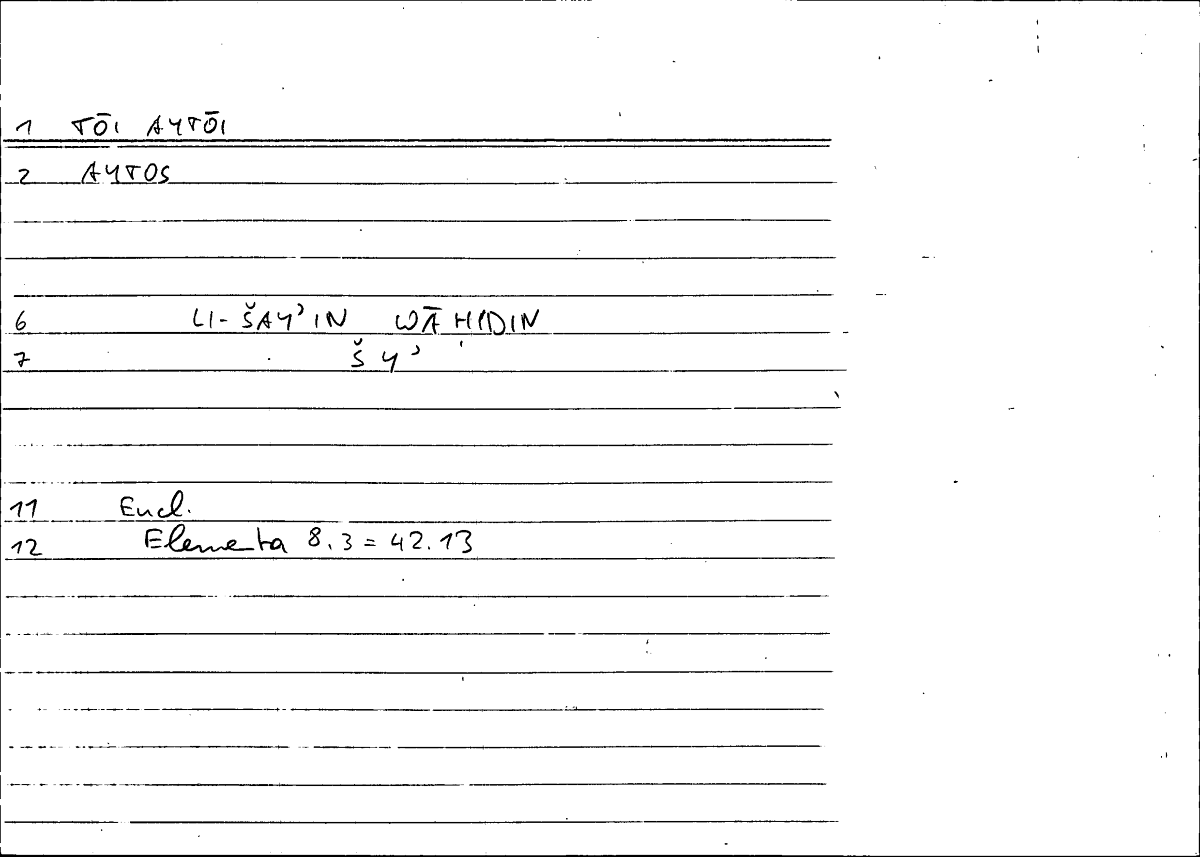 1 TŌI AYTŌI
2 AYTOS
6 LI-ŠAY'IN WĀḤIDIN
7 ŠY'
11 Eucl.
12 Elementa 8.3 = 42.13